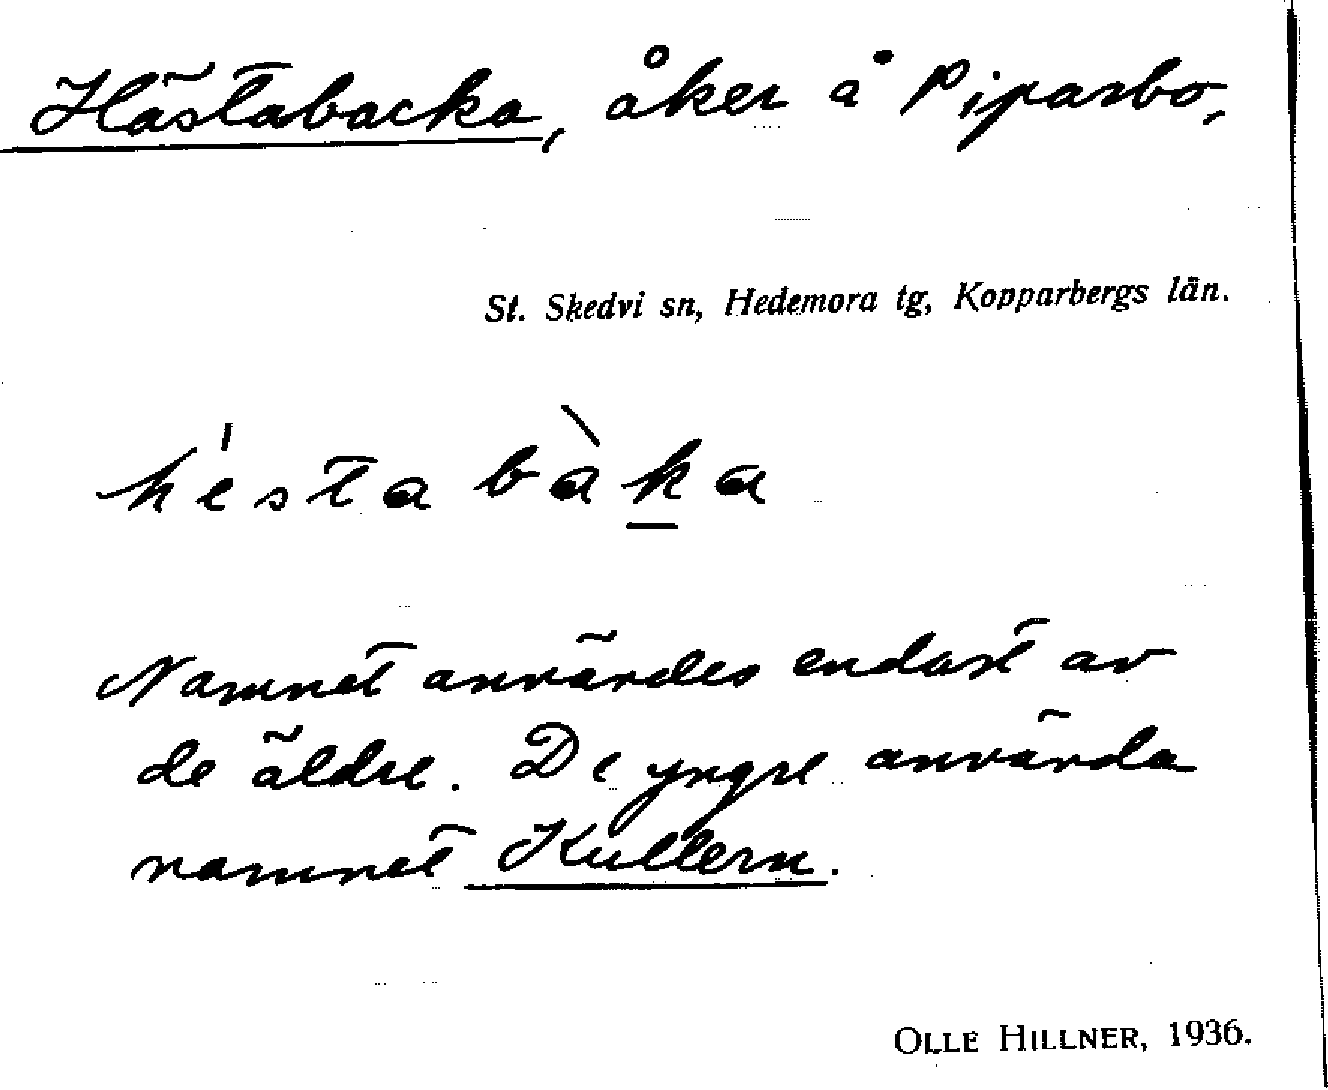 Hästabacka, åker å Piparsbo,
St. Skedvi sn, Hedemora tg, Kopparbergs län.
hésta bàka
Namnet användes endast av
de äldre. De yngre använda
namnet Kullern.
OLLE HILLNER, 1936.